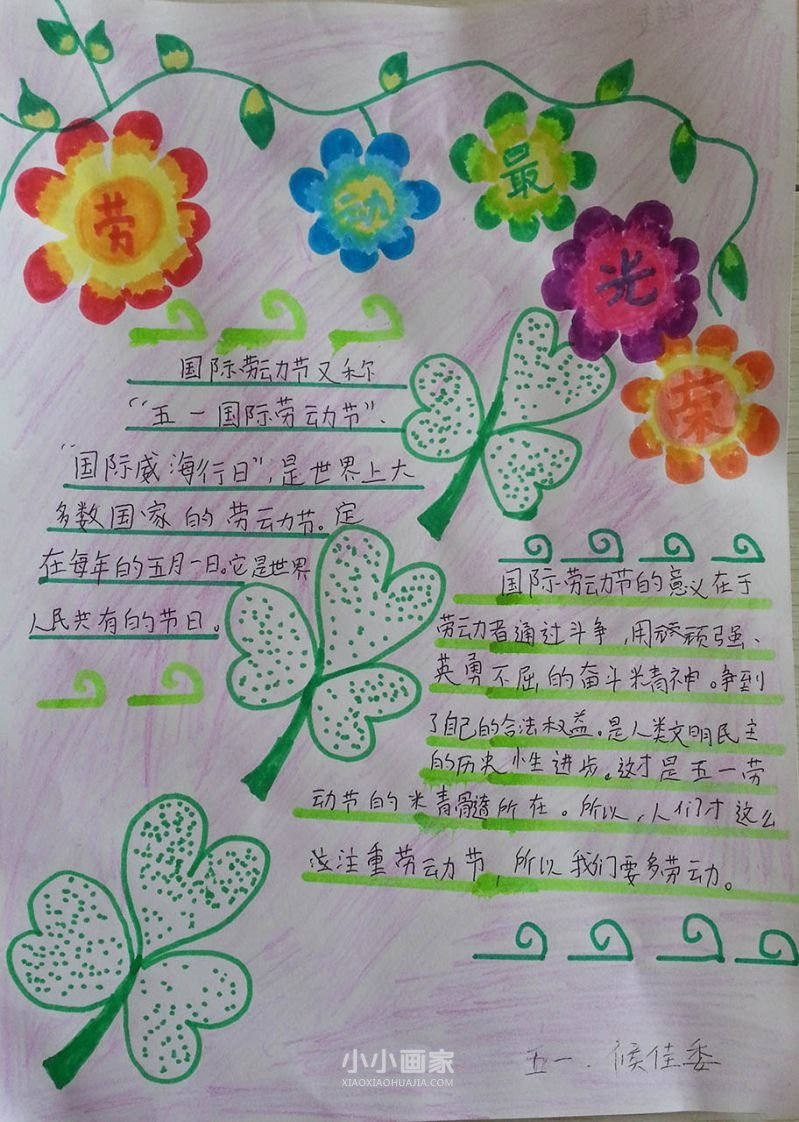 劳动最光荣
国际劳动节又称
“五一国际劳动节”、
“国际威海行日”,是世界上大
多数国家的劳动节。定
在每年的五月一日。它是世界
人民共有的节日。
国际劳动节的意义在于
劳动者通过斗争,用顽强、
英勇不屈的奋斗精神。争到
了自己的合法权益。是人类文明民主
的历史性进步。这才是五一劳
动节的精髓所在。所以,人们才这么
注重劳动节,所以我们要多劳动。
五一、候佳委
小小画家
XIAOXIAOHUAJIA.COM